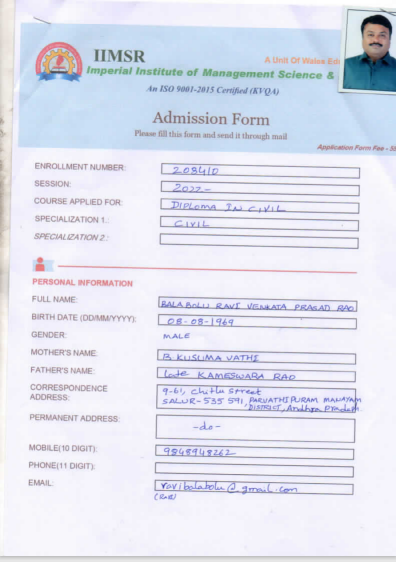 IIMSR
A Unit Of Wales Ed
Imperial Institute of Management Science &
An ISO 9001-2015 Certified (KVQA)
Admission Form
Please fill this form and send it through mail
Application Form Fee -
ENROLLMENT NUMBER: 208410
SESSION: 2022-
COURSE APPLIED FOR: DIPLOMA IN CIVIL
SPECIALIZATION 1.: CIVIL
SPECIALIZATION 2.:
PERSONAL INFORMATION
FULL NAME: BALABOLU RAVI VENKATA PRASAD RAO
BIRTH DATE (DD/MM/YYYY): 08-08-1969
GENDER: MALE
MOTHER'S NAME: B. KUSUMA VATHI
FATHER'S NAME: Late KAMESWARA RAO
CORRESPONDENCE 9-61, Chitlu street
ADDRESS: SALUR-535 591, PARVATHIPURAM MANAYAM
DISTRICT, Andhra Pradesh
PERMANENT ADDRESS: -do-
MOBILE(10 DIGIT): 9848948262
PHONE(11 DIGIT):
EMAIL: ravibalabolu@gmail.com